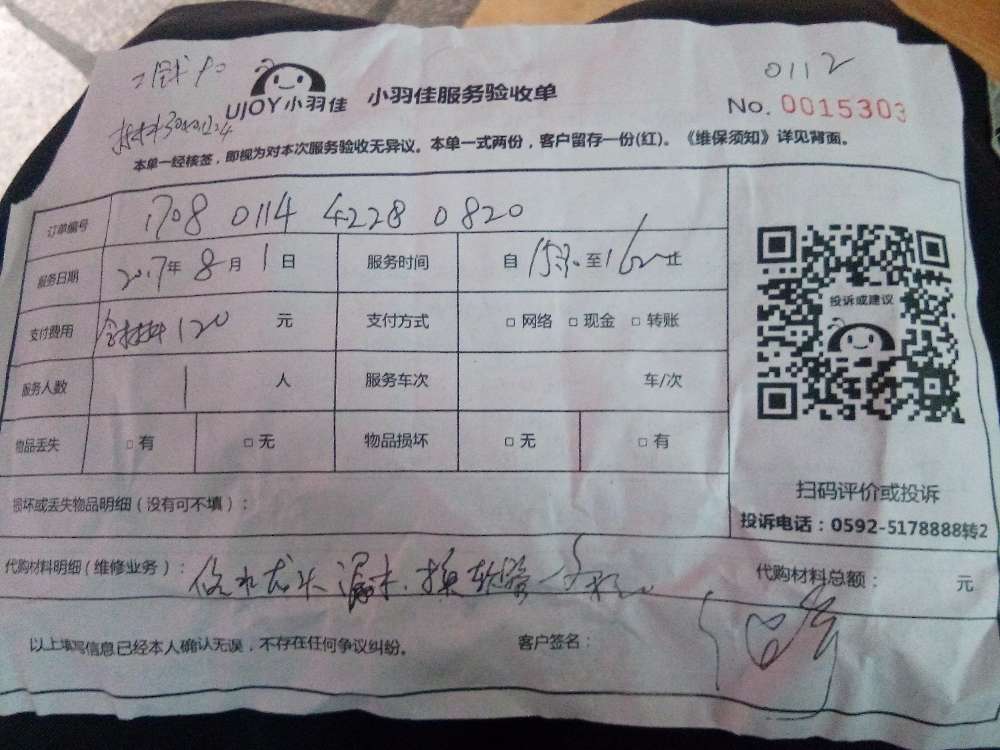 0112
UJOY小羽佳 小羽佳服务验收单
No. 0015303
本单一经核签，即视为对本次服务验收无异议。本单一式两份，客户留存一份(红)。《维保须知》详见背面。
订单编号 1708 0114 4228 0820
服务日期 2017年 8月 1日 服务时间 自 1530 至 1620 止
支付费用 含材料120 元 支付方式 □ 网络 □ 现金 □ 转账
服务人数 1 人 服务车次 车/次
物品丢失 □ 有 □ 无 物品损坏 □ 无 □ 有
投诉或建议
扫码评价或投诉
投诉电话：0592-5178888转2
损坏或丢失物品明细（没有可不填）：
代购材料明细（维修业务）： 修水龙头漏水.换软管一条 代购材料总额： 元
以上填写信息已经本人确认无误，不存在任何争议纠纷。 客户签名：